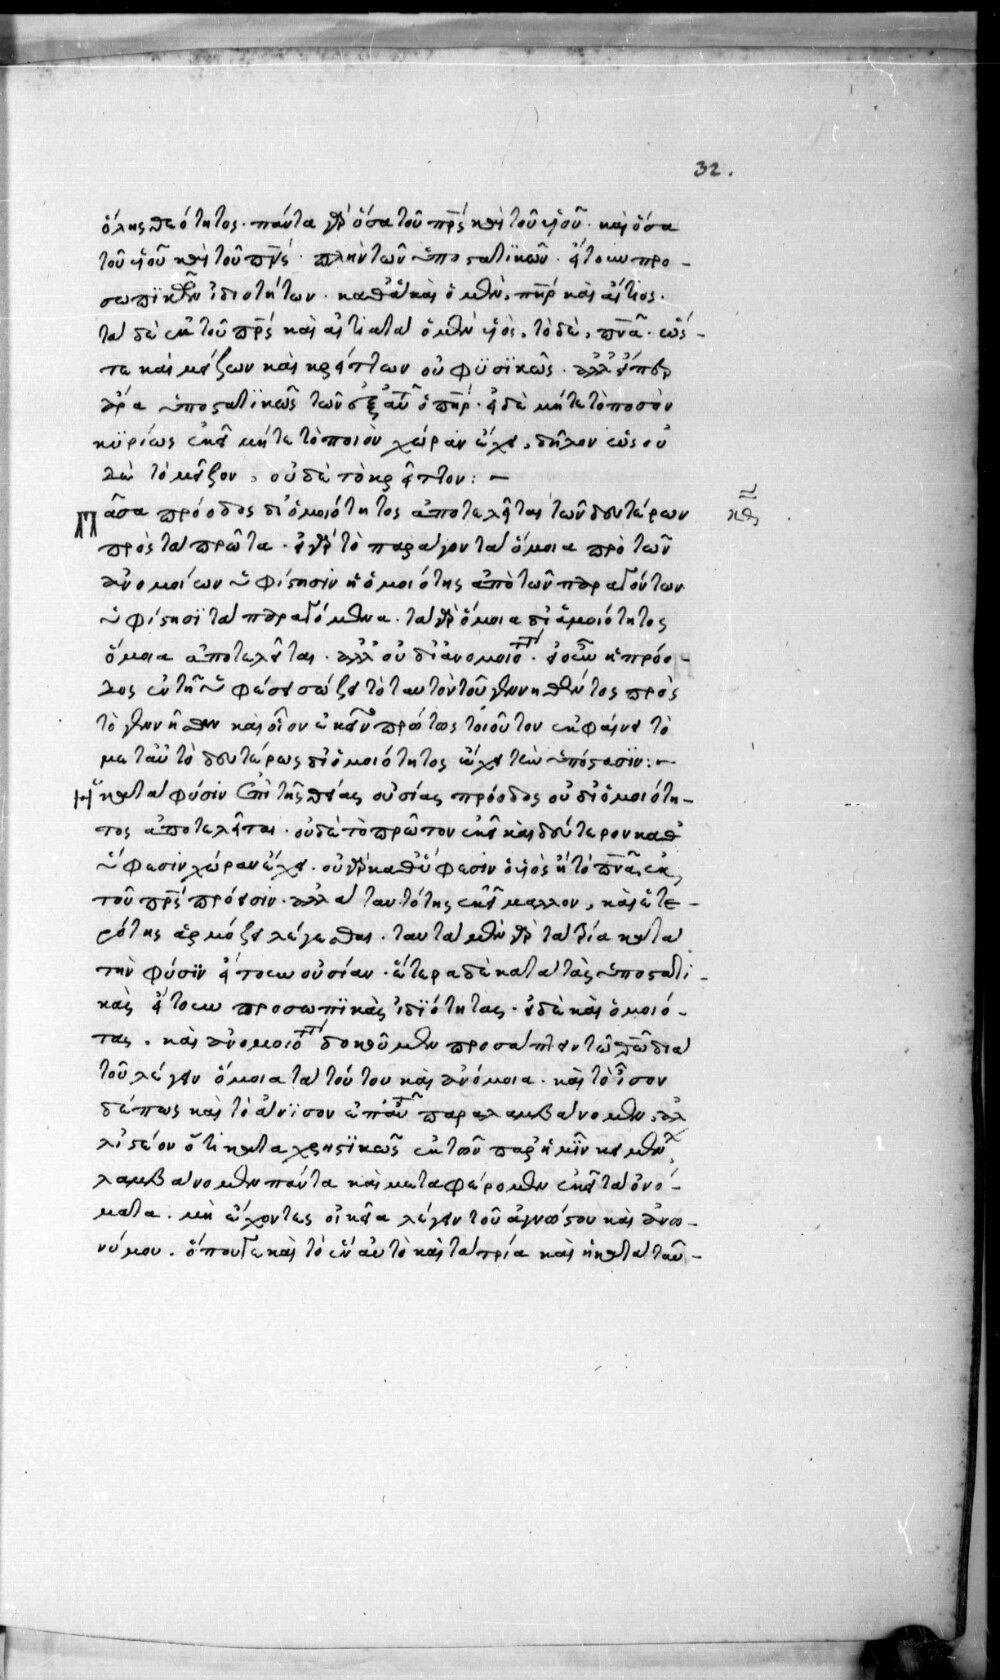 32.
ὅλης θεότητος. πάντα γὰρ ὅσα τοῦ πρς καὶ τοῦ υἱοῦ. καὶ ὅσα
τοῦ υἱοῦ καὶ τοῦ πνς. πλὴν τῶν ὑποστατϊκῶν. ἤτοι προ-
σωπϊκῶν ἰδιοτήτων. καθὰ καὶ ὁ μὲν, πηρ καὶ αἴτιος.
τὰ δὲ ἐκ τοῦ πρς καὶ αἰτιατὰ ὁ μὲν υἱὸς, τὸ δὲ, πνα. ὥσ-
τε καὶ μείζων καὶ κρείττων οὐ φϋσϊκῶς. ἀλλ' εἴπερ
ἄρα ὑποστατϊκῶς τῶν ἐξ αὐτοῦ ὁ πηρ. εἰ δὲ μήτε τὸ ποσὸν
κϋρίως ἐκεῖ μήτε τὸ ποιὸν χώραν ἔχει, δῆλον ὡς οὐ
δὲ τὸ μεῖζον, οὐδὲ τὸ κρεῖττον: -
Πᾶσα πρόοδος δι' ὁμοιότητος ἀποτελεῖται τῶν δευτέρων
πρὸς τὰ πρῶτα. εἰ γὰρ τὸ παράγον τὰ ὅμοια πρὸ τῶν
ἀνομοίων ὑφίστησιν ἡ ὁμοιότης ἀπὸ τῶν παραγόντων
ὑφίστησϊ τὰ παραγόμενα. τὰ γὰρ ὅμοια δι' ὁμοιότητος
ὅμοια ἀποτελεῖται. ἀλλ' οὐ δι' ἀνομοιότητος. εἰ οὖν ἡ πρόο-
δος ἐν τῇ ὑφέσει σώζει τὸ ταυτὸν τοῦ γεννηθέντος πρὸς
τὸ γεννῆθεν καὶ οἷον ἐκεῖνο πρώτως τοιοῦτον ἐκφαίνει τὸ
μετ' αὐτὸ δευτέρως δι' ὁμοιότητος ἔχει τὴν ὑπόστασϊν: -
Ἡ κατὰ φύσϊν ἐπὶ τῆς θείας οὐσίας πρόοδος οὐ δι' ὁμοιότη-
τος ἀποτελεῖται. οὐδὲ τὸ πρῶτον ἐκεῖ καὶ δεύτερον καθ'
ὕφεσϊν χώραν ἔχει. οὐ γὰρ καθ' ὕφεσιν ὁ υἱὸς ἢ τὸ πνα ἐκ
τοῦ πρς πρόεισιν. ἀλλὰ ταυτότης ἐκεῖ μᾶλλον, καὶ ἑτε-
ρότης ἁρμόζει λέγεσθαι. ταυτὰ μὲν γὰρ τὰ τρία κατὰ
τὴν φύσϊν ἤτοι οὐσίαν. ἕτερα δὲ κατὰ τὰς ὑποστατι-
κὰς ἤτοι προσωπϊκὰς ἰδϊότητας. εἰ δὲ καὶ ὁμοιό-
τας. καὶ ἀνομοιότητας δοκοῦμεν προσάπτειν τῷ θῶ διὰ
τοῦ λέγειν ὅμοια τὰ τούτου καὶ ἀνόμοια. καὶ τὸ ἴσον
δέ πως καὶ τὸ ἄνϊσον ἐπ' αὐτοῦ παραλαμβάνομεν, ἀλ
λ' ἰστέον ὅτι καταχρηστϊκῶς ἐκ τῶν παρ' ἡμῖν κειμένων
λαμβάνομεν πάντα καὶ μεταφέρομεν ἐκεῖ τὰ ὀνό-
ματα. μὴ ἔχοντες οἰκεῖα λέγειν τοῦ ἀγνώστου καὶ ἀνω-
νύμου. ὅπου γε καὶ τὸ ἓν αὐτὸ καὶ τὰ τρία καὶ ἡ κατὰ ταυ-